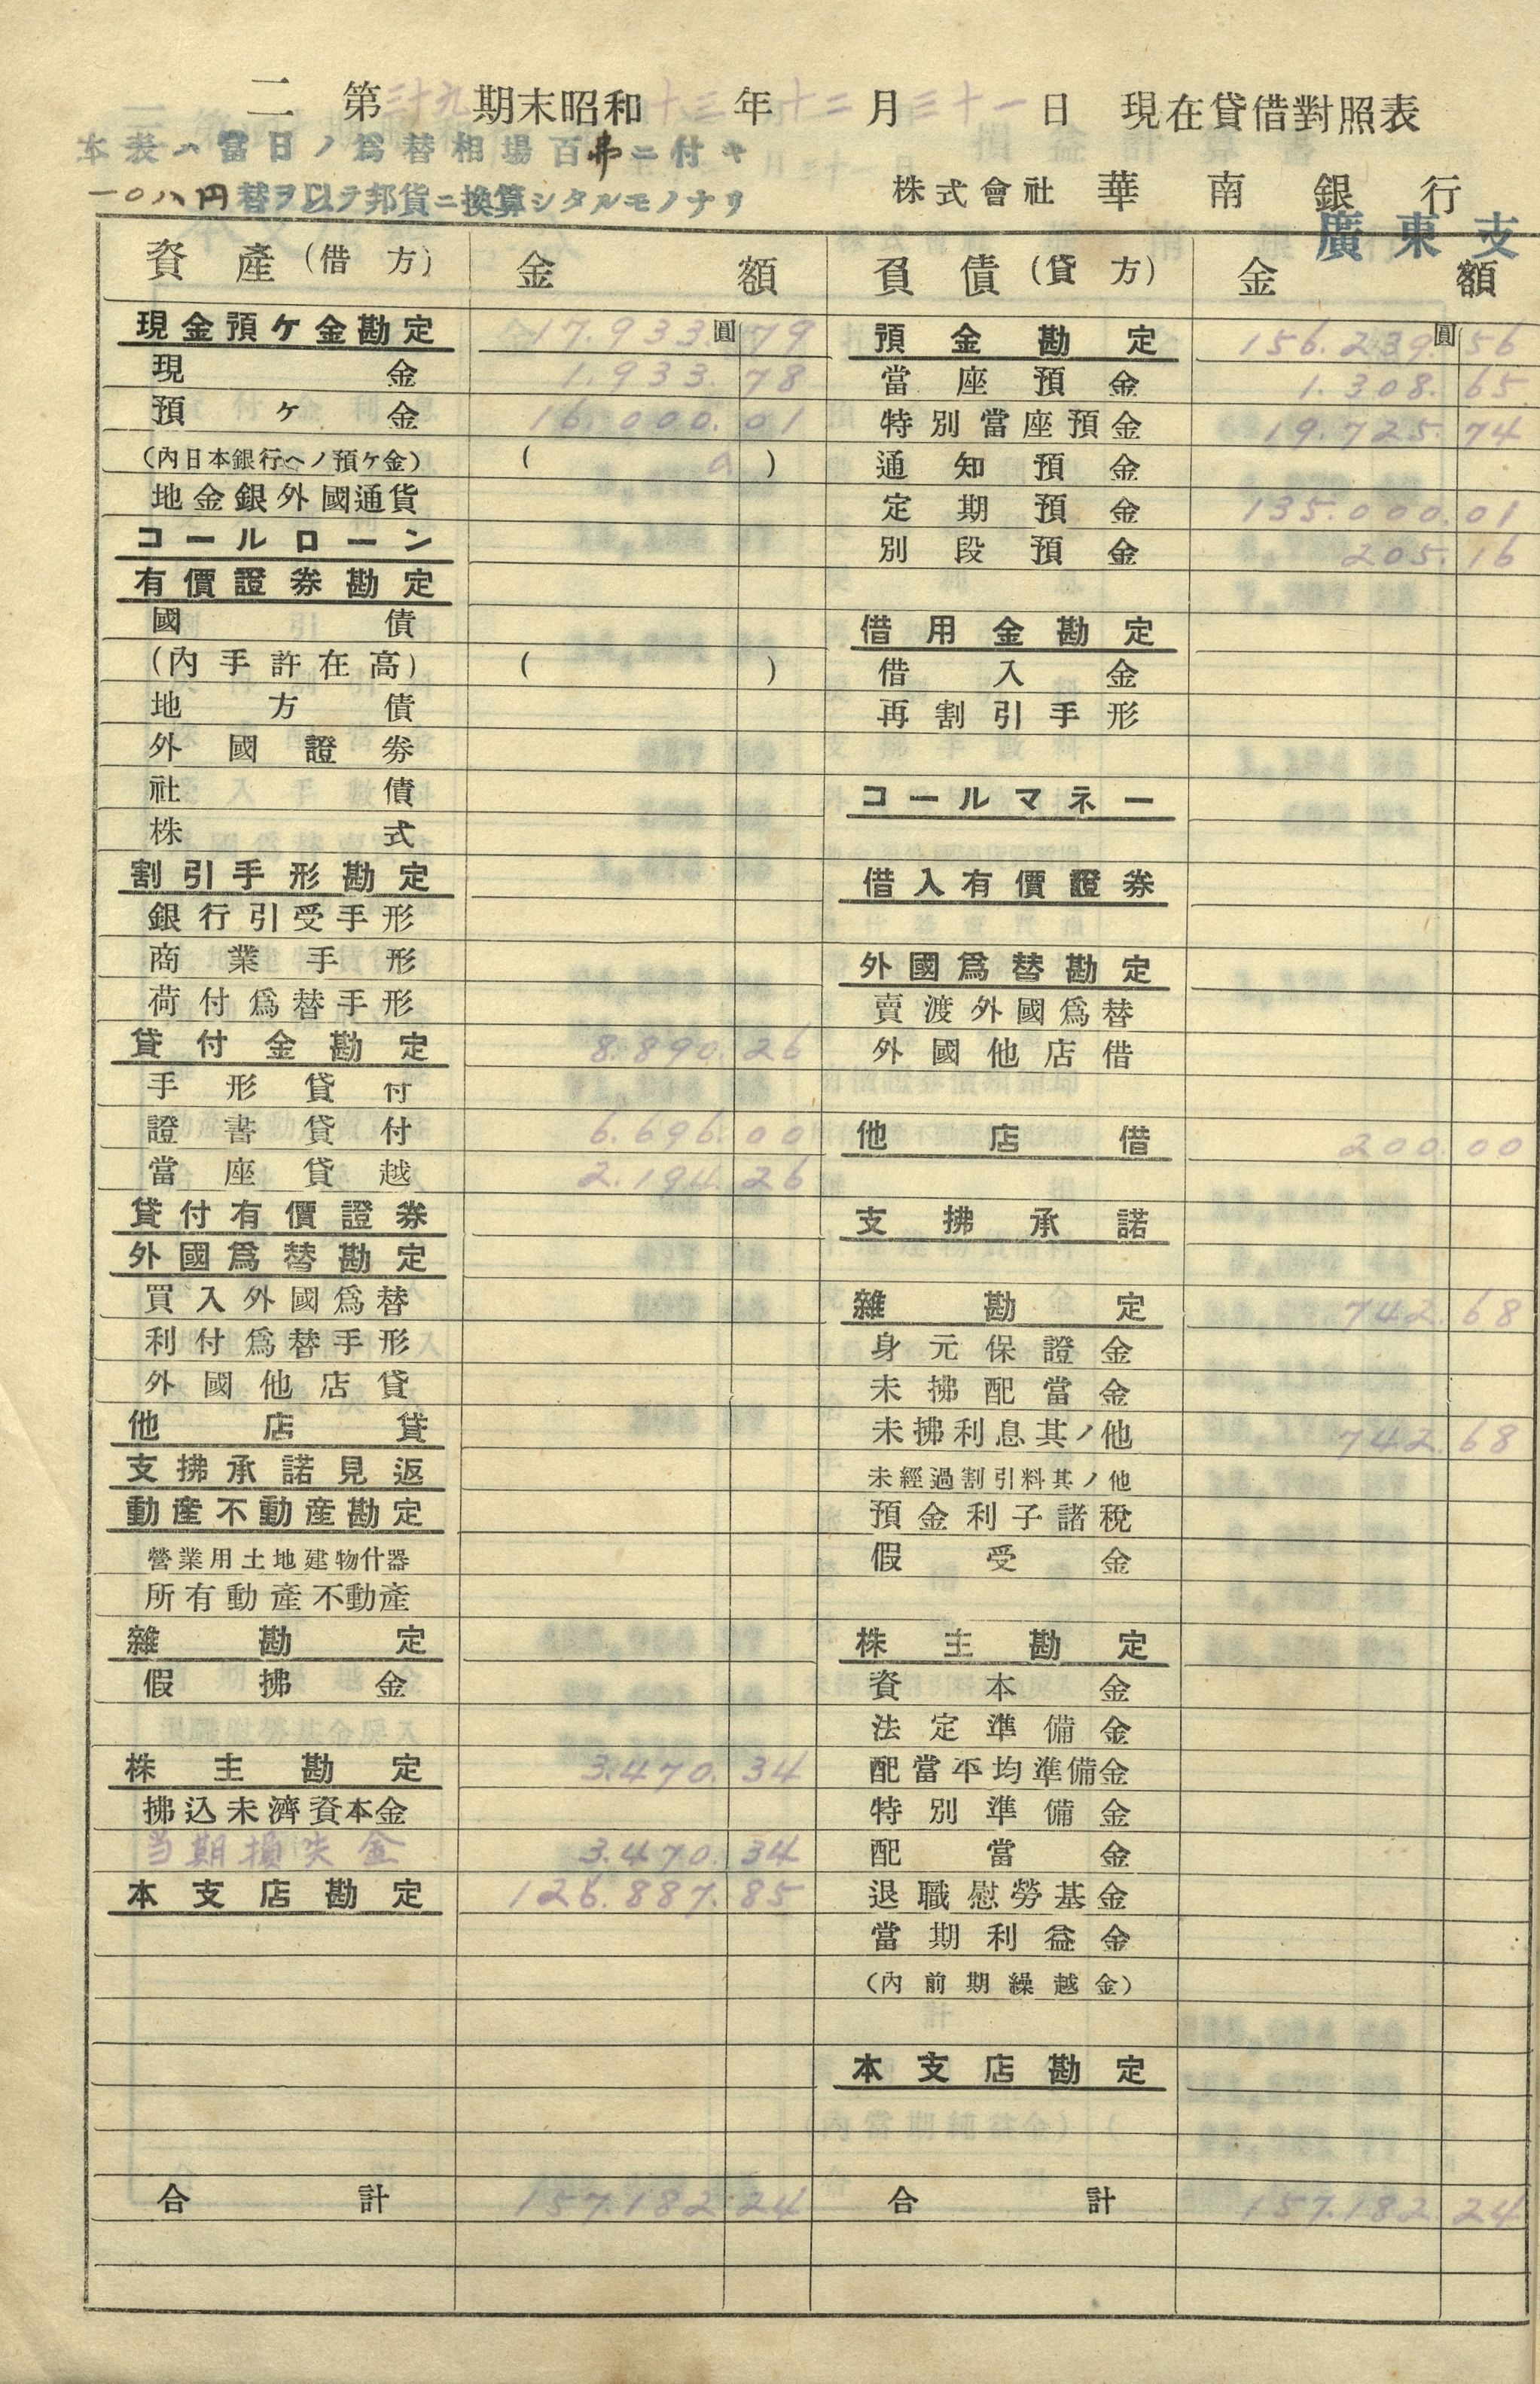 二 第三十九期末昭和十三年十二月三十一日 現在貸借對照表
本表ハ當日ノ爲替相場百弗ニ付キ
一〇八円替ヲ以テ邦貨ニ換算シタルモノナリ
株式會社 華南銀行
廣東支
資產(借方) 金額 負債(貸方) 金額
現金預ケ金勘定 17.933.圓79 預金勘定 156.239.圓56
現金 1.933.78 當座預金 1.308.65
預ケ金 16.000.01 特別當座預金 19.725.74
(內日本銀行ヘノ預ケ金) ( 0 ) 通知預金
地金銀外國通貨 定期預金 135.000.01
コールローン 別段預金 205.16
有價證券勘定
國債 借用金勘定
(內手許在高) ( ) 借入金
地方債 再割引手形
外國證券
社債 コールマネー
株式
割引手形勘定 借入有價證券
銀行引受手形
商業手形 外國爲替勘定
荷付爲替手形 賣渡外國爲替
貸付金勘定 8.890.26 外國他店借
手形貸付
證書貸付 6.696.00 他店借 200.00
當座貸越 2.194.26
貸付有價證券 支拂承諾
外國爲替勘定
買入外國爲替 雜勘定 742.68
利付爲替手形 身元保證金
外國他店貸 未拂配當金
他店貸 未拂利息其ノ他 742.68
支拂承諾見返 未經過割引料其ノ他
動產不動產勘定 預金利子諸稅
營業用土地建物什器 假受金
所有動產不動產
雜勘定 株主勘定
假拂金 資本金
法定準備金
株主勘定 3.470.34 配當平均準備金
拂込未濟資本金 特別準備金
当期損失金 3.470.34 配當金
本支店勘定 126.887.85 退職慰勞基金
當期利益金
(內前期繰越金)
本支店勘定
合計 157.182.24 合計 157.182.24